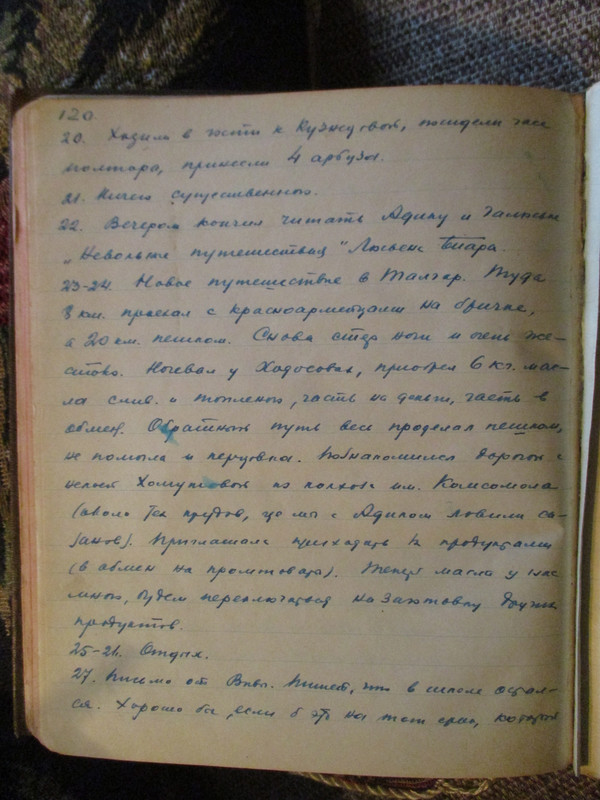 120.
20. Ходили в гости к Кузнецовой, посидели часа
полтора, принесли 4 арбуза.
21. Ничего существенного.
22. Вечером кончил читать Адику и
"Невольные путешествия" Люсьена Биара.
23-24. Новое путешествие в Талгар. Туда
8 км. проехал с красноармейцами на бричке,
а 20 км. пешком. Снова стер ноги и очень же-
стоко. Ночевал у Ходосовых, приобрел 6 кг. мас-
ла слив. и топленого, часть на деньги, часть в
обмен. Обратный путь весь проделал пешком,
не помогла и перцовка. Познакомился дорогой с
Хомутовой из колхоза им. Комсомола
(около тех прудов, где мы с Адиком ловили са-
занов). Приглашала приходить за продуктами
(в обмен на промтовары). Теперь масла у нас
много, будем переключаться на заготовку других
продуктов.
25-26. Отдых.
27. Письмо от Вовы. Пишет, что в школе остал-
ся. Хорошо бы, если б это на тот срок, который